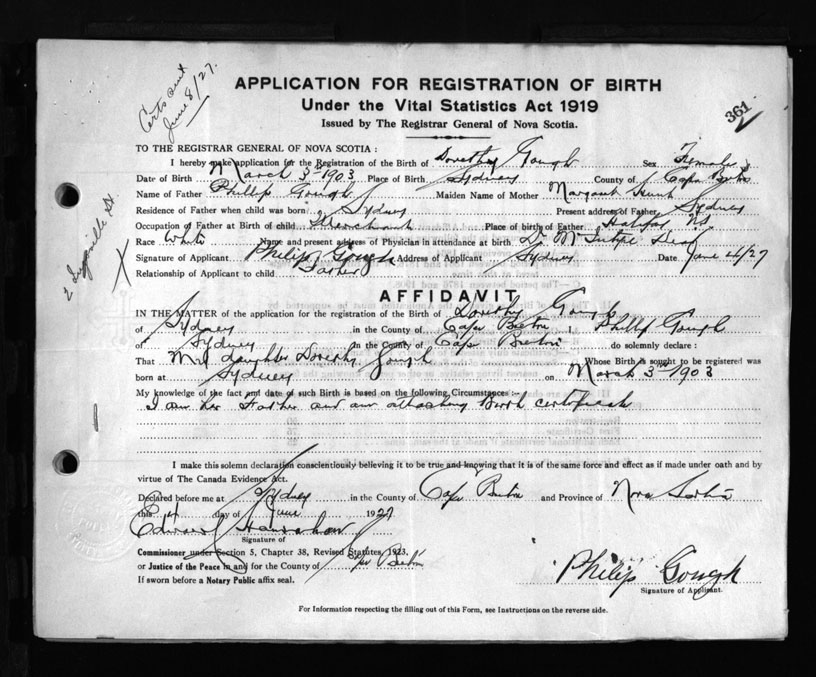 Certs sent
June 8/27.
APPLICATION FOR REGISTRATION OF BIRTH
Under the Vital Statistics Act 1919
Issued by The Registrar General of Nova Scotia.
361
TO THE REGISTRAR GENERAL OF NOVA SCOTIA :
I hereby make application for the Registration of the Birth of Dorothy Gough Sex Female
Date of Birth March 3-1903 Place of Birth Sydney County of Cape Breton
Name of Father Phillip Gough Maiden Name of Mother Margaret
Residence of Father when child was born Sydney Present address of Father Sydney
Occupation of Father at Birth of child Merchant Place of birth of Father Halifax NS
Race White Name and present address of Physician in attendance at birth Dr
Signature of Applicant Philip Gough Address of Applicant Sydney Date June 4/27
Relationship of Applicant to child Father
AFFIDAVIT
IN THE MATTER of the application for the registration of the Birth of Dorothy Gough
of Sydney in the County of Cape Breton I, Phillip Gough
of Sydney in the County of Cape Breton do solemnly declare :
That My daughter Dorothy Gough Whose Birth is sought to be registered was
born at Sydney on March 3rd 1903
My knowledge of the fact and date of such Birth is based on the following Circumstances :-
I am her Father and am attaching Birth certificate
I make this solemn declaration conscientiously believing it to be true and knowing that it is of the same force and effect as if made under oath and by
virtue of The Canada Evidence Act.
Declared before me at Sydney in the County of Cape Breton and Province of Nova Scotia
this 4 day of June 1927
Signature of
Commissioner under Section 5, Chapter 38, Revised Statutes, 1923,
or Justice of the Peace in and for the County of Cape Breton
If sworn before a Notary Public affix seal.
Philip Gough
Signature of Applicant.
For Information respecting the filling out of this Form, see Instructions on the reverse side.